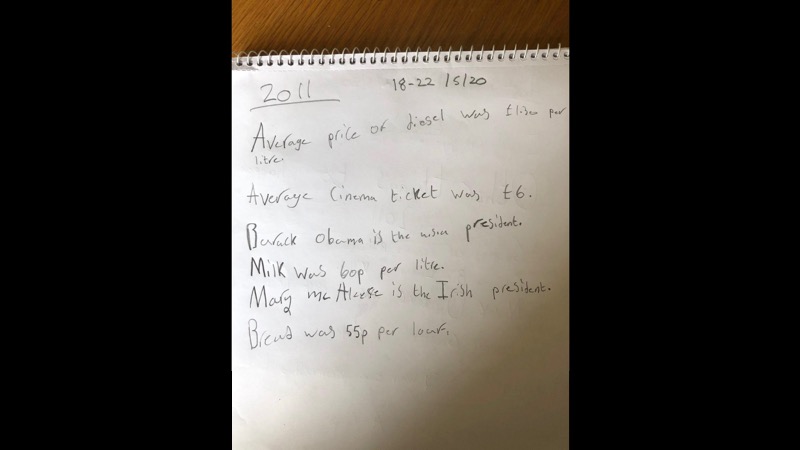 2011
18-22 /5/20
Average price of diesel was per
litre.
Average Cinema ticket was £6.
Barack Obama is the president.
Milk was 60p per litre.
Mary mc Aleese is the Irish president.
Bread was 55p per loaf.